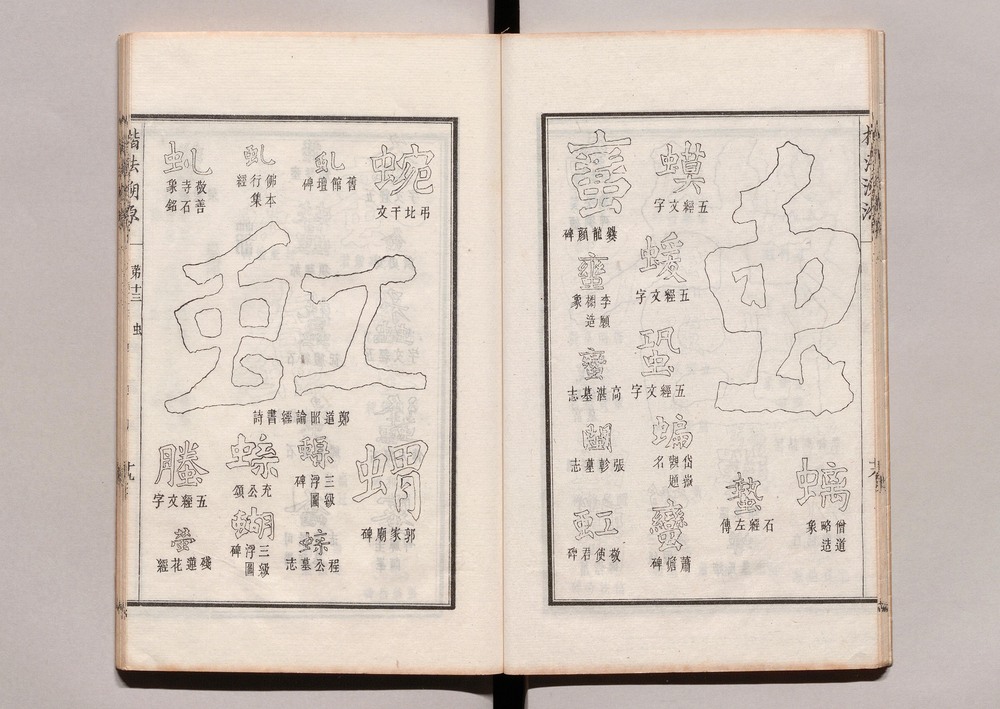 虫
螭
僧道
略造
象
蟄
石經左傳
蟆
五經文字
蝯
五經文字
蛩
五經文字
蝙
岱嶽
觀題
名
蠻
蕭憺碑
蠻
爨龍顏碑
蠻
李願
檦造
象
蠻
高湛墓志
閩
張軫墓志
虹
敬使君碑
蜿
弔比干文
虬
舊館壇碑
虬
佛本
行集
經
虬
敬善
寺石
象銘
虹
鄭道昭論經書詩
蝟
郭家廟碑
三級
浮圖
碑
程公墓志
蝝
兗公頌
蝴
三級
浮圖
碑
螣
五經文字
螢
殘蓮花經
楷法溯源
弟十三
虫
十九